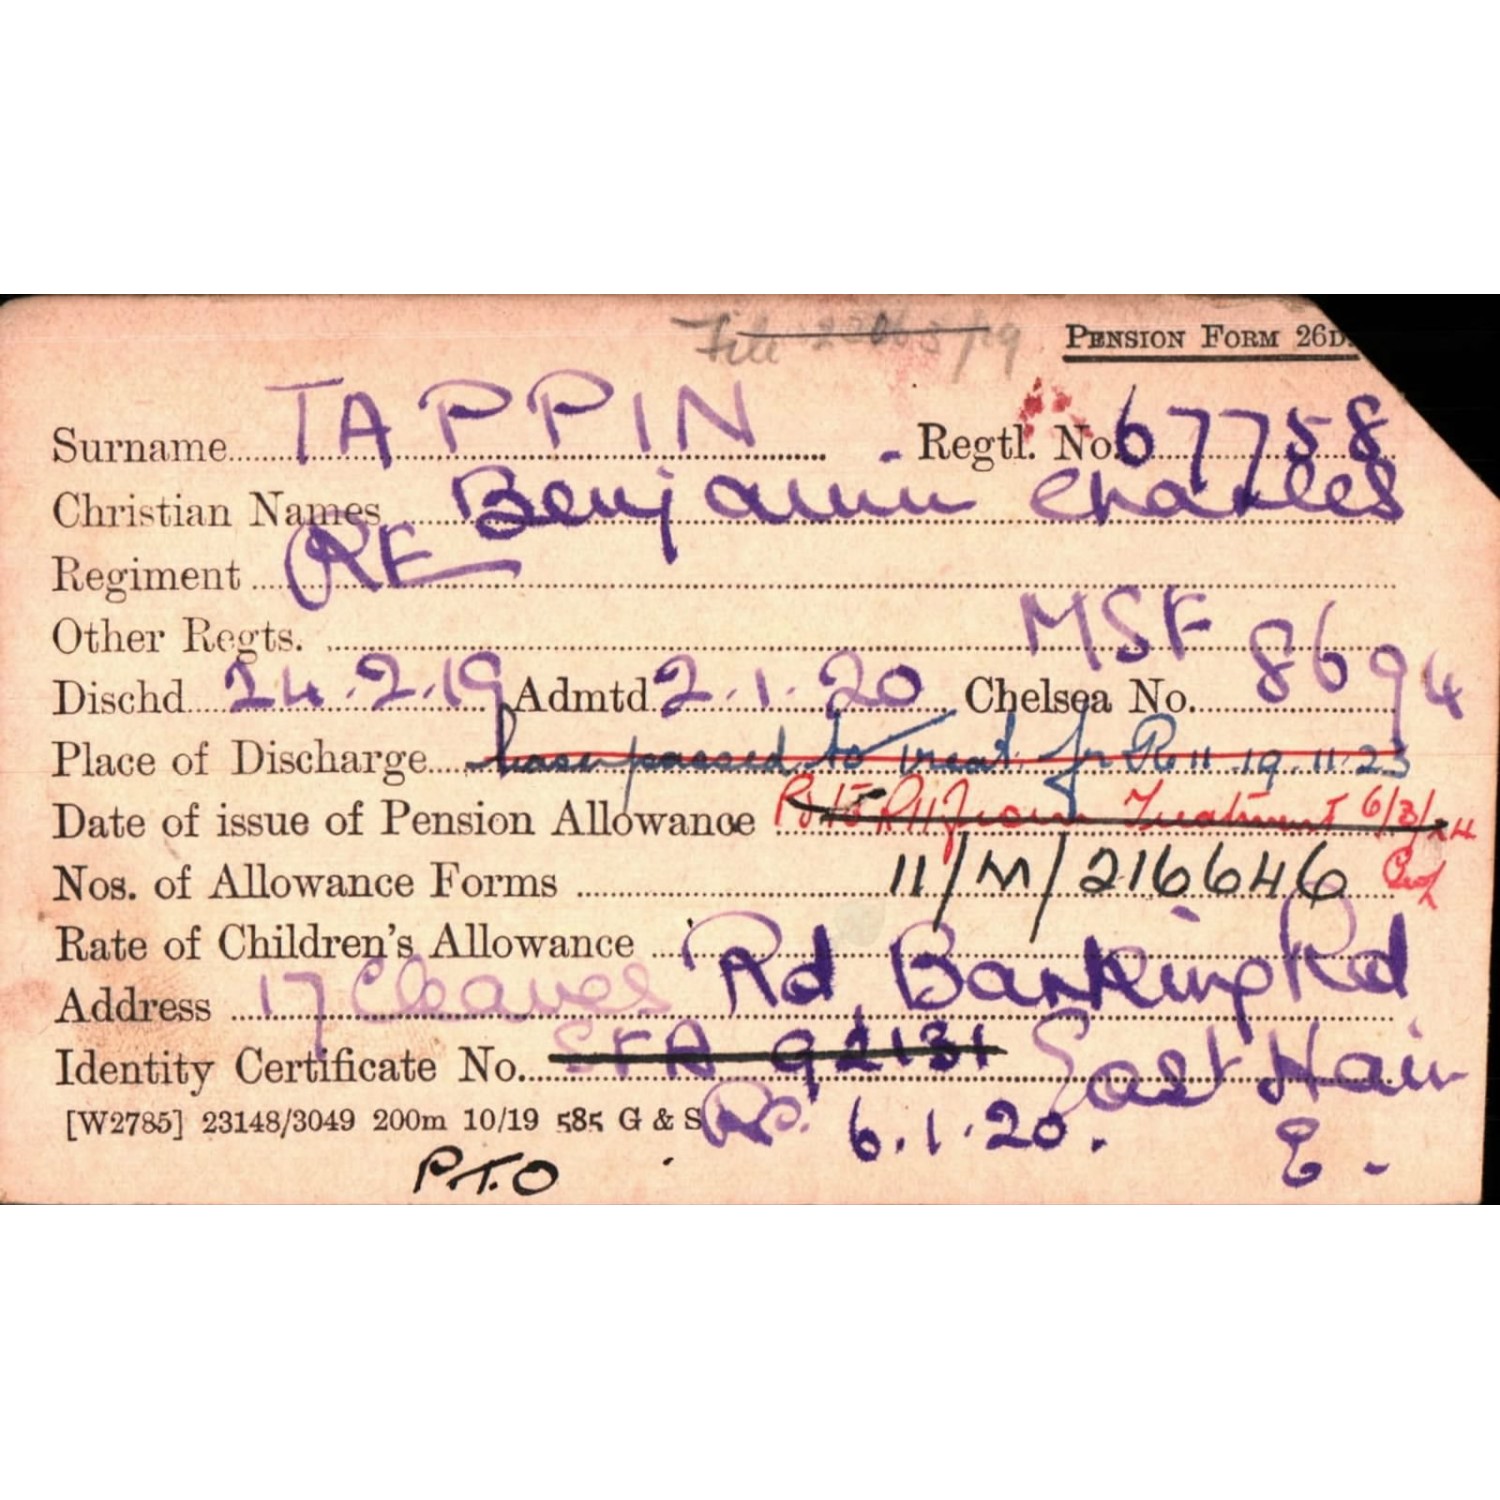 File 22063/19 PENSION FORM 26D.
Surname TAPPIN Regtl. No. 67758
Christian Names Benjamin Charles
Regiment RE
Other Regts. MSF
Dischd 24.2.19 Admtd 2.1.20 Chelsea No. 8694
Place of Discharge Case passed to Treat. fr R11 19.11.23
Date of issue of Pension Allowance R11 from Treatment 6/3/24
Nos. of Allowance Forms 11/M/216646
Rate of Children's Allowance
Address 17 Cleaves Rd, Barking Rd
Identity Certificate No. SFA 92131 East Ham
[W2785] 23148/3049 200m 10/19 585 G & S 6.1.20. E.
P.T.O